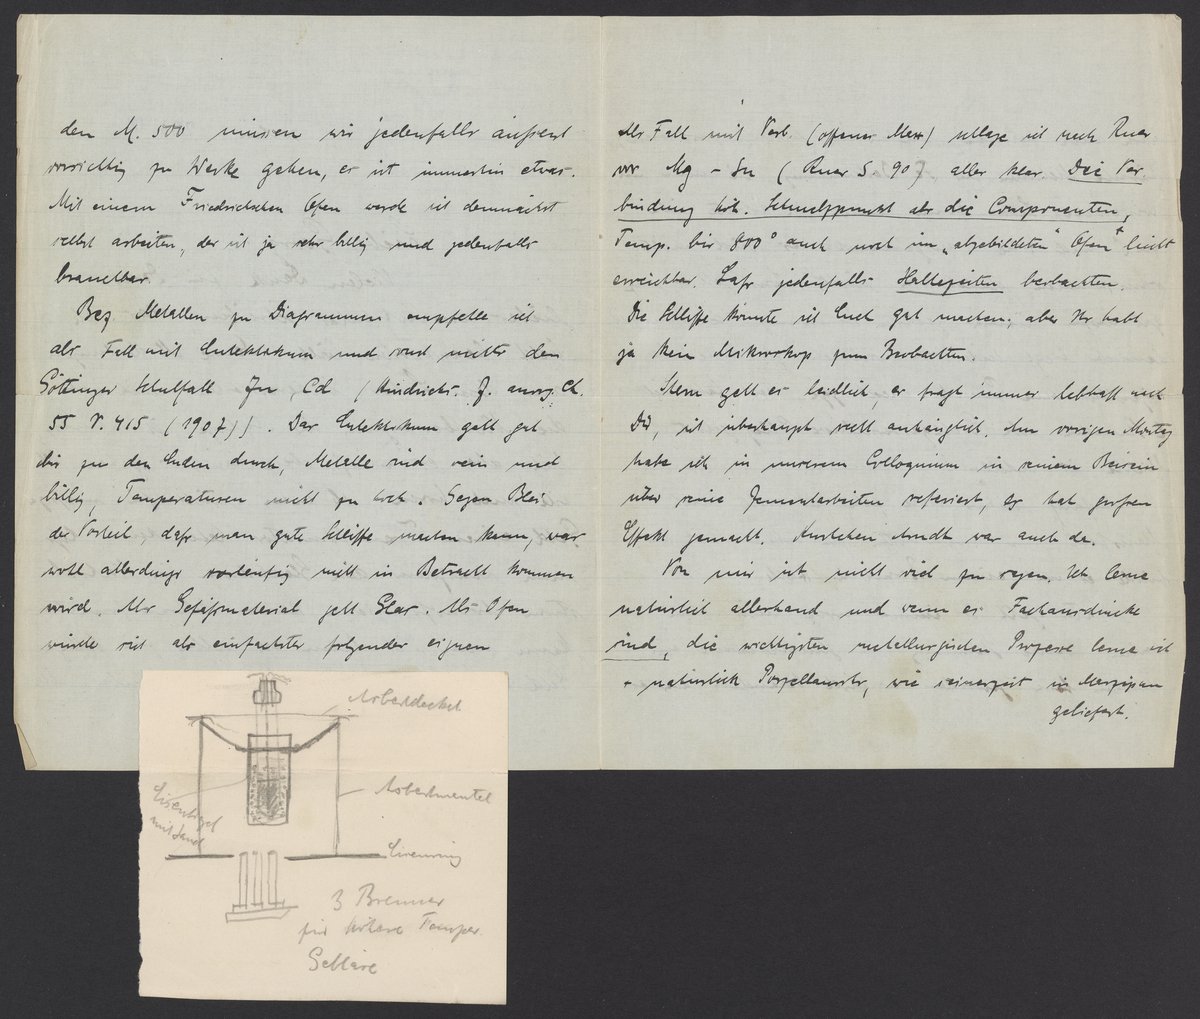 den M. 500 müssen wir jedenfalls äußerst
vorsichtig zu Werke gehen, es ist immerhin etwas.
Mit einem Friedrichschen Ofen werde ich demnächst
selbst arbeiten, der ist ja sehr billig und jedenfalls
brauchbar.
Bez. Metallen zu Diagrammen empfehle ich
als Fall mit Eutektikum und sonst nichts den
Göttinger Schulfall Zn, Cd (Hindrichs. Z. anorg. Ch.
55 S. 415 (1907)). Das Eutektikum geht gut
bis zu den Enden durch, Metalle sind rein und
billig, Temperaturen nicht zu hoch. Gegen Blei
der Vorteil, daß man gute Schliffe machen kann, was
wohl allerdings vorläufig nicht in Betracht kommen
wird. Als Gefäßmaterial geht Glas. Als Ofen
würde sich als einfachster folgender eignen
Asbestdeckel
Eisentiegel
mit Sand
Asbestmantel
Eisenring
3 Brenner
für höhere Temper.
Gebläse
Als Fall mit Verb. (offenes Max) schlage ich nach Ruer
vor Mg - Sn (Ruer S. 90) alles klar. Die Ver
bindung höh. Schmelzpunkt als die Componenten,
Temp. bis 800° auch noch im "abgebildeten" Ofen + leicht
erreichbar. Laß jedenfalls Haltezeiten beobachten.
Die Schliffe könnte ich Euch gut machen, aber Ihr habt
ja kein Mikroskop zum Beobachten.
Stern geht es leidlich, er fragt immer lebhaft nach
Dir, ist überhaupt recht anhänglich. Am vorigen Montag
habe ich in unserem Colloquium in seinem Beisein
über seine Zementarbeiten referiert, es hat großen
Effekt gemacht. Arndt war auch da.
Von mir ist nicht viel zu sagen. Ich lerne
natürlich allerhand und wenn es Fachausdrücke
sind, die wichtigsten metallurgischen Prozesse lerne ich
+ natürlich Porzellanrohr, wie seinerzeit in Marzipan
geliefert.